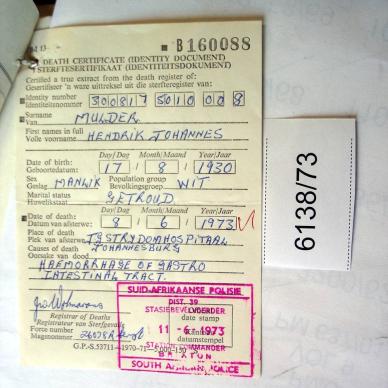 B160088
DEATH CERTIFICATE (IDENTITY DOCUMENT)
STERFTESERTIFIKAAT (IDENTITEITSDOKUMENT)
Certified a true extract from the death register of:
Gesertifiseer 'n ware uittreksel uit die sterfteregister van:
Identity number
Identiteitsnommer 300817 5010 00 8
Surname
Van MULDER
First names in full
Volle voorname HENDRIK JOHANNES
Day/Dag Month/Maand Year/Jaar
Date of birth:
Geboortedatum: 17 8 1930
Sex Population group
Geslag MANLIK Bevolkingsgroep WIT
Marital status
Huwelikstaat GETROUD
Day/Dag Month/Maand Year/Jaar
Date of death:
Datum van afsterwe: 8 6 1973
Place of death
Plek van afsterwe JG STRYDOM HOSPITAAL
Causes of death JOHANNESBURG
Oorsake van dood
HAEMORRHAGE OF GASTRO
INTESTINAL TRACT.
Registrar of Deaths
Registrateur van Sterfgevalle
Force number
Magsnommer
G.P.-S.53711-1970-71-5,000-150
SUID-AFRIKAANSE POLISIE
DIST. 39
STASIEBEVELVOERDER
date stamp
11 -6- 1973
datumstempel
STATION COMMANDER
BRIXTON
SOUTH AFRICAN POLICE
6138/73